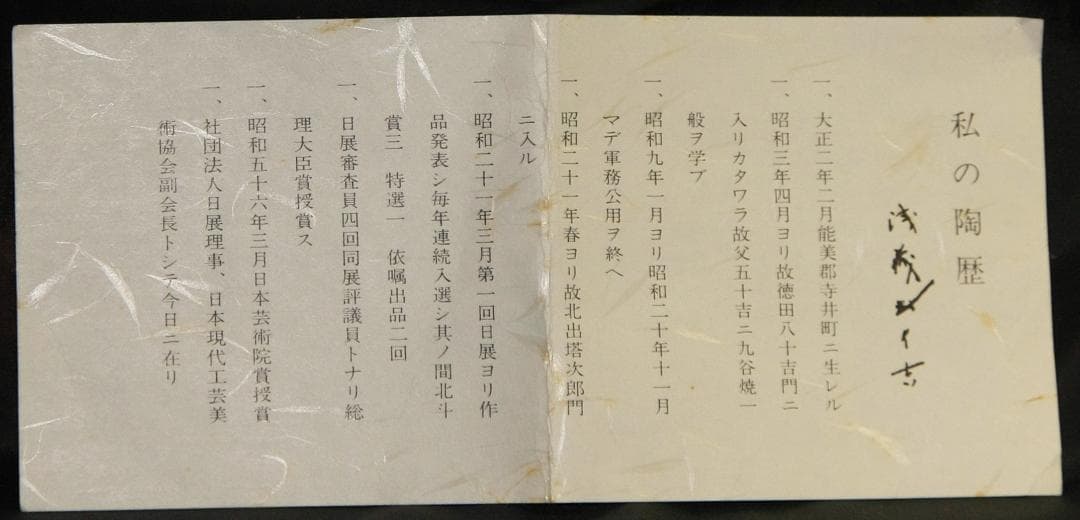 私の陶歴
浅蔵五十吉
一、大正二年二月能美郡寺井町ニ生レル
一、昭和三年四月ヨリ故徳田八十吉門ニ
入リカタワラ故父五十吉ニ九谷焼一
般ヲ学ブ
一、昭和九年一月ヨリ昭和二十年十一月
マデ軍務公用ヲ終ヘ
一、昭和二十一年春ヨリ故北出塔次郎門
ニ入ル
一、昭和二十一年三月第一回日展ヨリ作
品発表シ毎年連続入選シ其ノ間北斗
賞三　特選一　依嘱出品二回
一、日展審査員四回同展評議員トナリ総
理大臣賞授賞ス
一、昭和五十六年三月日本芸術院賞授賞
一、社団法人日展理事、日本現代工芸美
術協会副会長トシテ今日ニ在リ